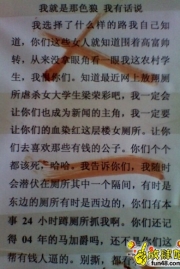 我就是那色狼 我有话说
我选择了什么样的路我自己知
道，你们这些女人就知道围着高富帅
转，从来没拿眼角看一眼我这农村学
生，我恨你们。知道最近网上放厕
所虐杀女大学生梁荣彩吧，我一定会
让你们也成为新闻的主角，我一定要
让你们的血染红这层楼女厕所。让你
们去喜欢那些有钱的公子。你们个个
都该死，哈哈。我告诉你们，我随时
会潜伏在厕所其中一个隔间，有时是
东边的厕所有时是西边的，你们有本
事 24 小时蹲厕所抓我啊。你们还记
得 04 年的马加爵吗，还不是你们这
帮有钱人逼的。别撕，都
fun48.com